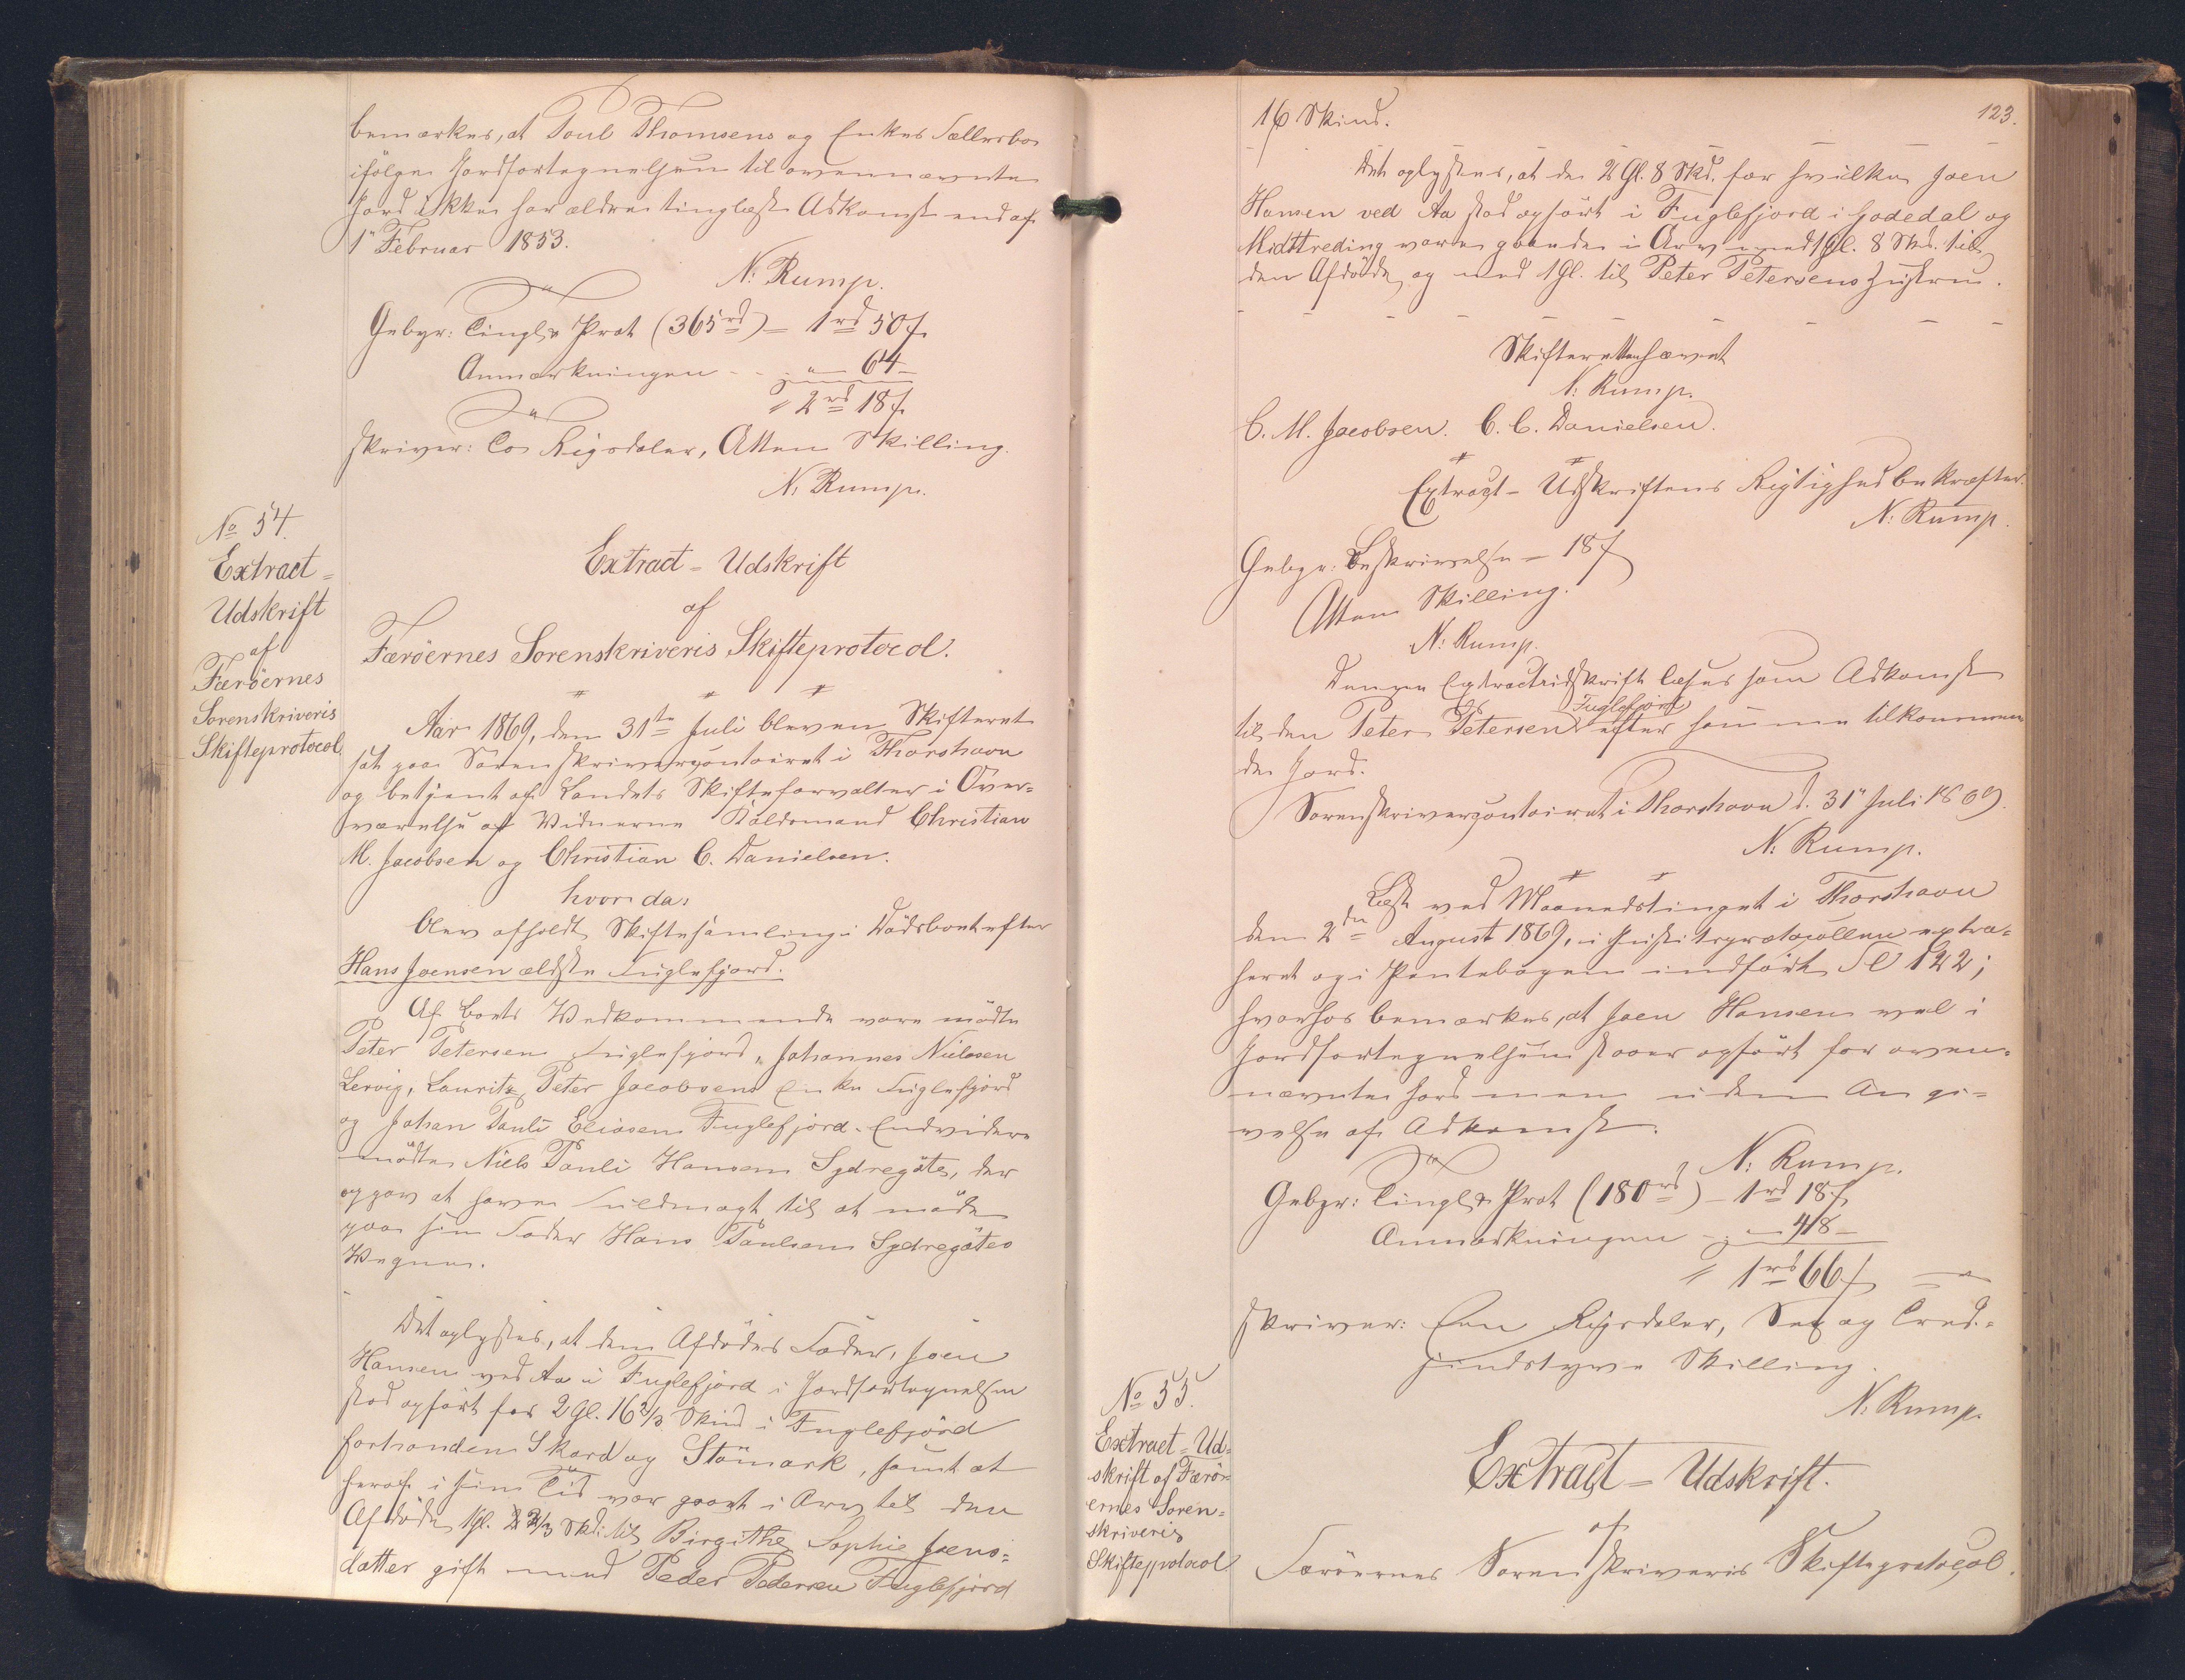 bemærkes, at Poul Thomsens og Enkes Fællesbo
ifölge Jordfortegnelsen til ovennævnte
Jord ikke har ældre tinglæst Adkomst end af
1" Februar 1853.
N. Rump.
Gebyr: Tingl. & Prot (365 rd) = 1 rd 50 ß
Anmærkningen - - " 64 -
2 rd 18 ß
skriver: To Rigsdaler, Atten Skilling.
N. Rump.
No 54.
Extract=
Udskrift
af
Færöernes
Sorenskriveris
Skifteprotocol
Extract-Udskrift
af
Færöernes Sorenskriveris Skifteprotocol.
Aar 1869, den 31te Juli blev en Skifteret
sat paa Sorenskrivercontoiret i Thorshavn
og betjent af Landets Skifteforvalter i Over=
værelse af Vidnerne Kaldsmand Christian
M. Jacobsen og Christian C. Danielsen.
hvor da:
blev afholdt Skiftesamling i Dödsboet efter
Hans Joensen ældste Fuglefjord.
Af Boets Vedkommende vare mödte
Peter Petersen Fuglefjord, Johannes Nielsen
Lervig, Lauritz Peter Jacobsens Enke Fuglefjord
og Johan Pauli Eliasen Fuglefjord. Endvidere
mödte Niels Pauli Hansen Sydregöte, der
opgav at have Fuldmagt til at möde
paa sin Fader Hans Paulsen Sydregötes
Vegne.
Det oplystes, at den Afdödes Fader, Joen
Hansen ved Aa i Fuglefjord i Jordfortegnelsen
stod opfört for 2 Gl. 16 2/3 Skind i Fuglefjord
forhanden Skard og Stömark, samt at
heraf i sin Tid var gaaet i Arv til den
Afdöde 1 Gl. 2/3 Skd: til Birgithe Sophie Joens=
datter gift med Peder Pedersen Fuglefjord
123.
16 Skind.
Det oplystes, at de 2 Gl. 8 Skd. for hvilke Joen
Hansen ved Aa stod opfört i Fuglefjord i Godedal og
Midttreding vare gaaende i Arv med 1 Gl. 8 Skd. til
den Afdöde og med 1 Gl. til Peter Petersens Hustru.
Skifteretten hævet
N. Rump.
C. M. Jacobsen. C. C. Danielsen.
Extract-Udskriftens Rigtighed bekræfter.
N. Rump.
Gebyr: Beskrivelse = 18 ß
Atten Skilling.
N. Rump.
Denne Extractudskrift læses som Adkomst
til den Peter Petersen Fuglefjord efter samme tilkommen
de Jord.
Sorenskrivercontoiret i Thorshavn d. 31" Juli 1869.
N. Rump.
Læst ved Maanedstinget i Thorshavn
den 2den August 1869, i Justitsprotocollen extra=
heret og i Pantebogen indfört Fol 122;
hvorhos bemærkes, at Joen Hansen vel i
Jordfortegnelsen staaer opfört for oven=
nævnte Jord men uden Angi=
velse af Adkomst.
N. Rump.
Gebyr: Tingl. & Prot (180 rd) - 1 rd 18 ß
Anmærkningen - " 48 -
1 rd 66 ß
skriver: Een Rigsdaler, Sex og Tred=
sindstyve Skilling.
N. Rump.
No 55.
Extract=Ud=
skrift af Færö=
ernes Soren=
skriveris
Skifteprotocol
Extract-Udskrift.
af
Færöernes Sorenskriveris Skifteprotocol.